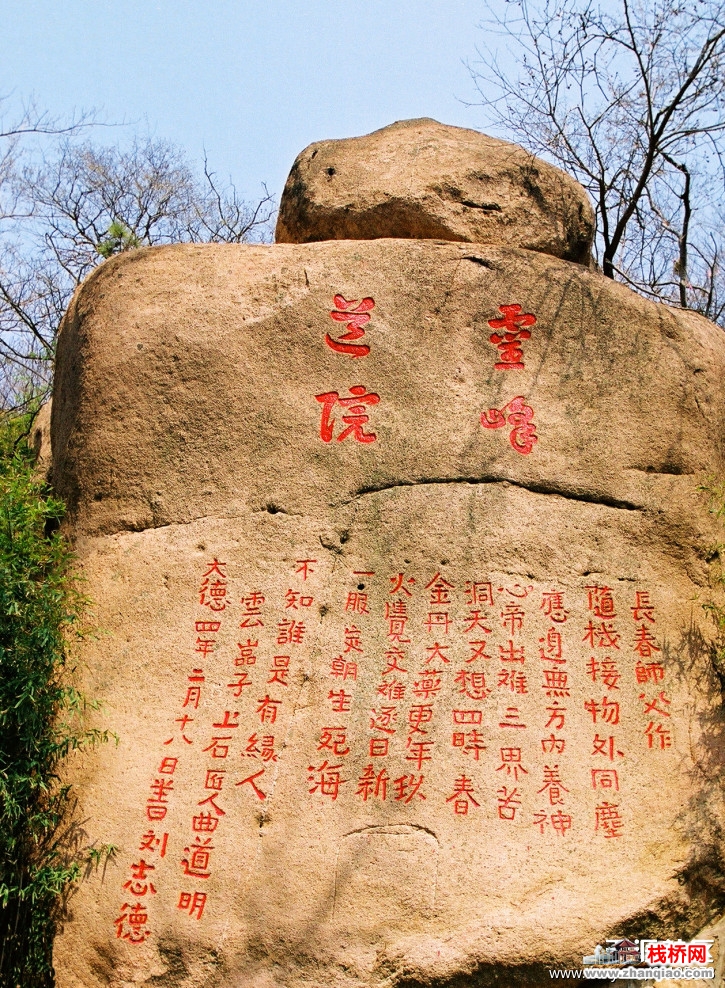 靈峰
道院
長春師父作
隨機接物外同塵
應邊無方内養神
心帝出離三界苦
洞天又想四時春
金丹大藥更年玖
火交難逐日新
一服定朝生死海
不知誰是有緣人
雲嵓子上石匠人曲道明
大德四年二月十八日書刘志德
栈桥网
www.zhanqiao.com